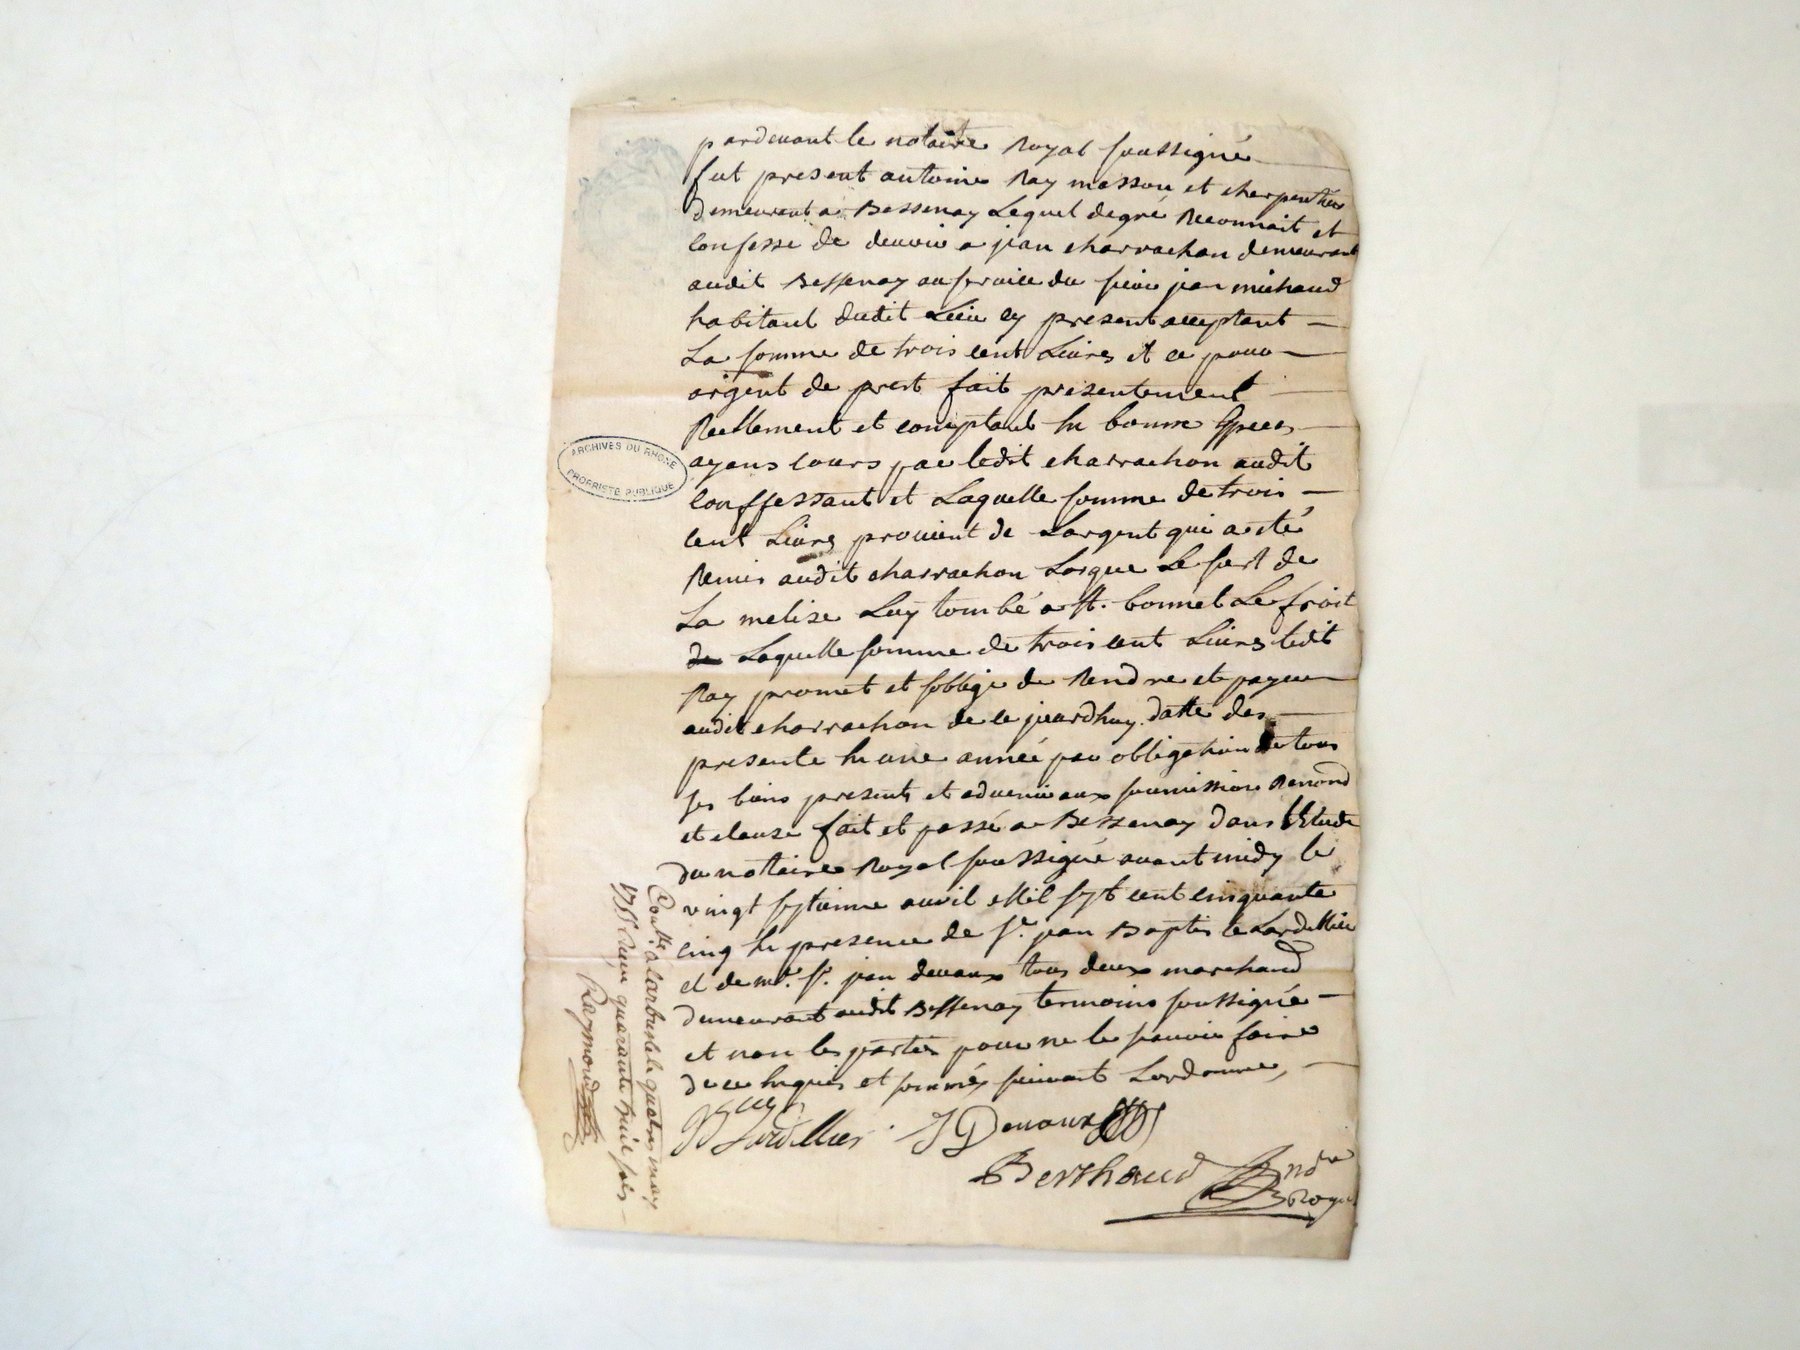 pardevant le notaire Royal soussigné
fut present antoine Ray masson et cherpentier
demeurant a Bessenay Lequel de gré Reconnait et
confesse de devoir a jean charrachon demeurant
audit Bessenay au service du sieur jean michaud
habitant dudit Lieu cy present acceptant
La somme de trois cent Livres et ce pour
argent de prest fait presentement
Reellement et comptant en bonne espece
ayans cours par ledit charrachon audit
conffessant et Laquelle somme de trois
cent Livres provient de Largent qui a esté
Remis audit charrachon Lorque Le sort de
La melise Luy tombé a st. bonnet Le froit
de Laquelle somme de trois cent Livres ledit
Ray promet et soblige de Rendre et payer
audit charrachon de ce jourdhuy datte des
presente en une année par obligation de tous
ses biens presents et advenir aux soumissions Renond
et clause fait et passé a Bessenay dans l'Etude
du notaire Royal soussigné avant midy le
vingt septieme avril Mil sept cent cinquante
cinq en presence de sr. jean Baptiste Lardellier
et de me. sr. jean devaux tous deux marchand
demeurant audit Bessenay termoins soussignée
et non les parties pour ne le savoir faire
de ce enquis et sommés suivant Lordonne,
JB Lardellier J Devaux
Berthaud nore
Royal
Conlle. a Larbresle le quatre may
1755 Reçu quarante huit sols
Raymond
ARCHIVES DU RHÔNE
PROPRIÉTÉ PUBLIQUE